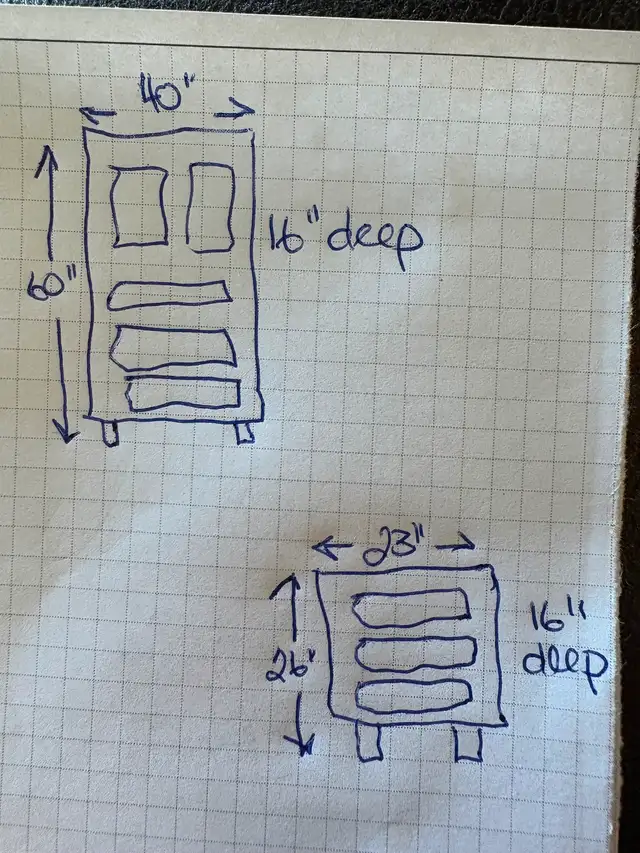 40"
16" deep
60"
23"
16"
deep
26"